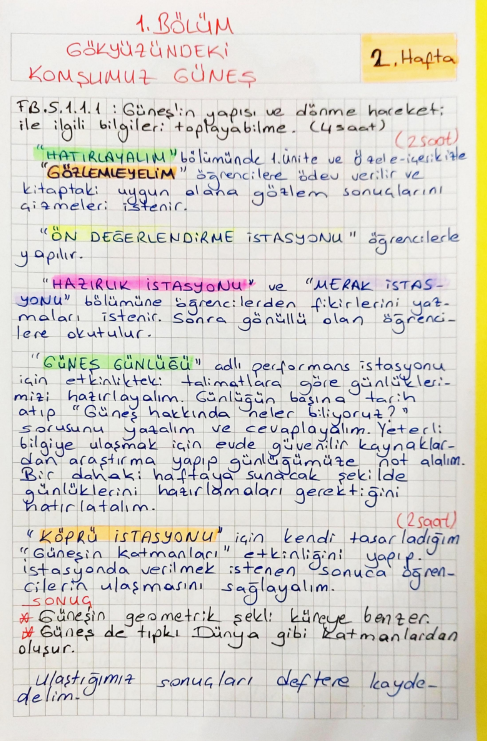 1. BÖLÜM
GÖKYÜZÜNDEKİ
KOMŞUMUZ GÜNEŞ
2. Hafta
FB.5.1.1.1 : Güneş'in yapısı ve dönme hareketi
ile ilgili bilgileri toplayabilme. (4 saat)
(2 saat)
"HATIRLAYALIM" bölümünde 1. ünite ve özele-içerikizle
"GÖZLEMLEYELİM" öğrencilere ödev verilir ve
kitaptaki uygun alana gözlem sonuçlarını
çizmeleri istenir.
"ÖN DEĞERLENDİRME İSTASYONU" öğrencilerle
yapılır.
"HAZIRLIK İSTASYONU" ve "MERAK İSTAS-
YONU" bölümüne öğrencilerden fikirlerini yaz-
maları istenir. Sonra gönüllü olan öğrenci-
lere okutulur.
"GÜNEŞ GÜNLÜĞÜ" adlı performans istasyonu
için etkinlikteki talimatlara göre günlükleri-
mizi hazırlayalım. Günlüğün başına tarih
atıp "Güneş hakkında neler biliyoruz?"
sorusunu yazalım ve cevaplayalım. Yeterli
bilgiye ulaşmak için evde güvenilir kaynaklar-
dan araştırma yapıp günlüğümüze not alalım.
Bir dahaki haftaya sunacak şekilde
günlüklerini hazırlamaları gerektiğini
hatırlatalım.
(2 saat)
"KÖPRÜ İSTASYONU" için kendi tasarladığım
"Güneşin Katmanları" etkinliğini yapıp.
istasyonda verilmek istenen sonuca öğren-
cilerin ulaşmasını sağlayalım.
SONUÇ
* Güneşin geometrik şekli küreye benzer.
* Güneş de tıpkı Dünya gibi katmanlardan
oluşur.
Ulaştığımız sonuçları deftere kayde-
delim.